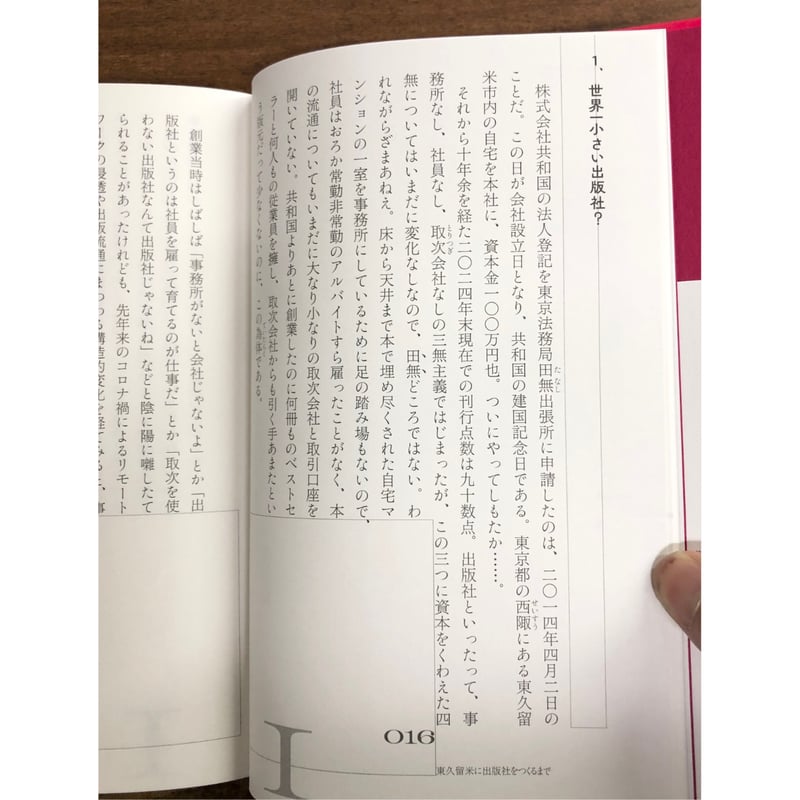 1、世界一小さい出版社？
株式会社共和国の法人登記を東京法務局田無出張所に申請したのは、二〇一四年四月二日の
たなし
ことだ。この日が会社設立日となり、共和国の建国記念日である。東京都の西陬にある東久留
せいすう
米市内の自宅を本社に、資本金一〇〇万円也。ついにやってしもたか……。
それから十年余を経た二〇二四年末現在での刊行点数は九十数点。出版社といったって、事
務所なし、社員なし、取次会社なしの三無主義ではじまったが、この三つに資本をくわえた四
とりつぎ
無についてはいまだに変化なしなので、田無どころではない。わ
れながらざまあねえ。床から天井まで本で埋め尽くされた自宅マ
ンションの一室を事務所にしているために足の踏み場もないので、
社員はおろか常勤非常勤のアルバイトすら雇ったことがなく、本
の流通についてもいまだに大なり小なりの取次会社と取引口座を
開いていない。共和国よりあとに創業したのに何冊ものベストセ
ラーと何人もの従業員を擁し、取次会社からも引く手あまたとい
う版元だって少なくないのに、この為体である。
016
I
東久留米に出版社をつくるまで
創業当時はしばしば「事務所がないと会社じゃないよ」とか「出
版社というのは社員を雇って育てるのが仕事だ」とか「取次を使
わない出版社なんて出版社じゃないね」などと陰に陽に囃したて
られることがあったけれども、先年来のコロナ禍によるリモート
ワークの浸透や出版流通にまつわる構造的変化を経てみると、事